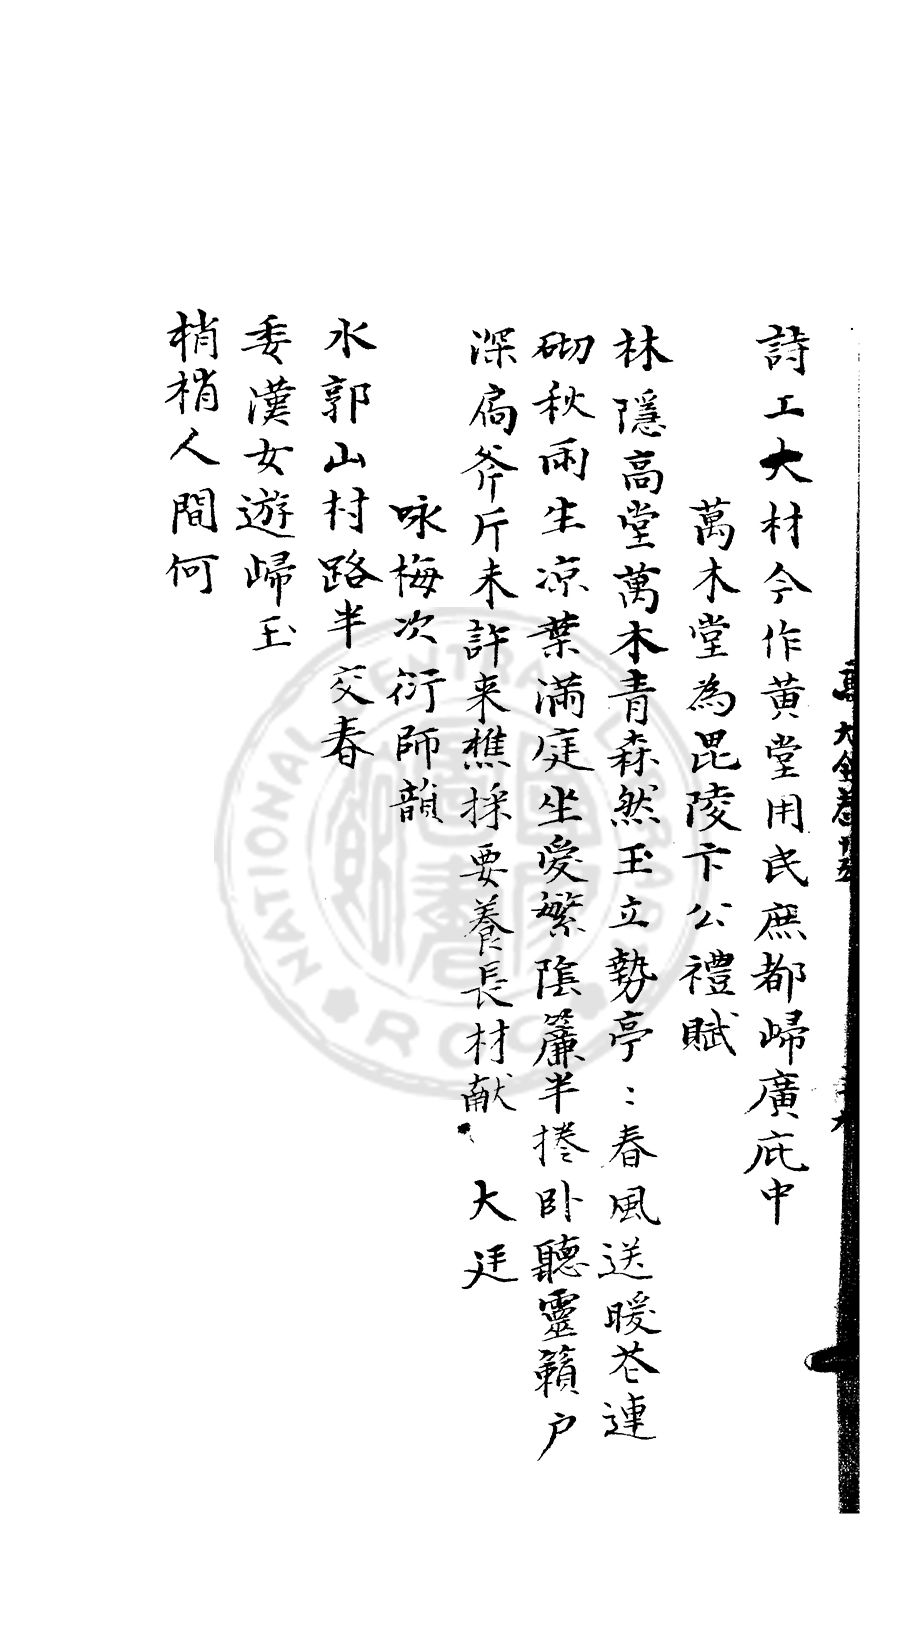 詩工大材今作黄堂用民庶都歸廣庇中
萬木堂為毘陵卞公禮賦
林隱高堂萬木青森然玉立勢亭：春風送暖花連
砌秋雨生凉葉滿庭坐愛繁陰簾半捲卧聽靈籟户
深扃斧斤未許来樵採要養長材献大廷
咏梅次衍師韻
水郭山村路半交春
委漢女遊歸玉
梢梢人間何
NATIONAL CENTRAL LIBRARY
R.O.C
國家圖書館